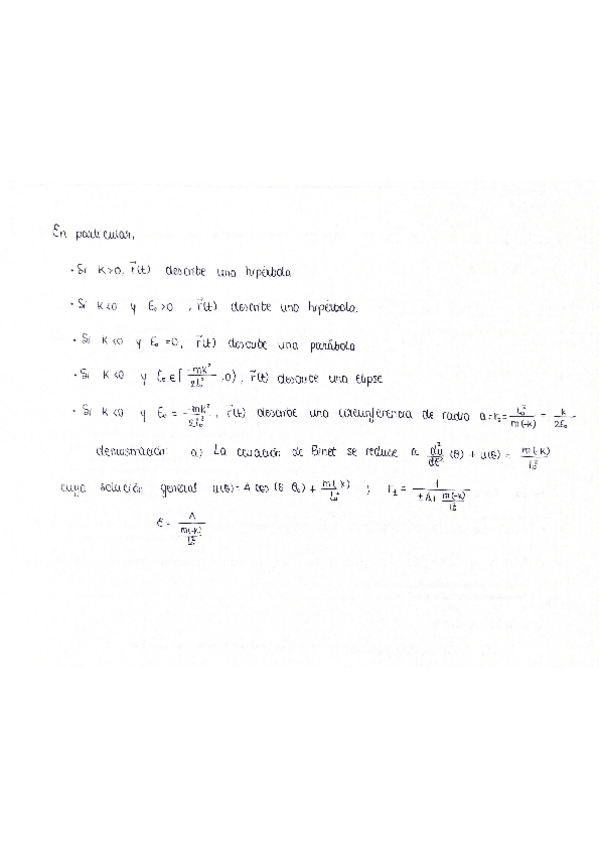 En particular,
· Si K>0, r⃗(t) describe una hipérbola
· Si K<0 y E₀>0, r⃗(t) describe una hipérbola.
· Si K<0 y E₀=0, r⃗(t) describe una parábola
· Si K<0 y E₀∈[-mk²/2L₀², 0), r⃗(t) describe una elipse
· Si K<0 y E₀ = -mk²/2L₀², r⃗(t) describe una circunferencia de radio a=r₀= L₀²/m(-k) = k/2E₀
demostración a) La ecuación de Binet se reduce a d²u/dθ² (θ) + u(θ) = m(-k)/L₀²
cuya solución general u(θ)= A cos (θ-θ₀) + m(-k)/L₀² ; r₁ = 1/(±A + m(-k)/L₀²)
e = A/(m(-k)/L₀²)